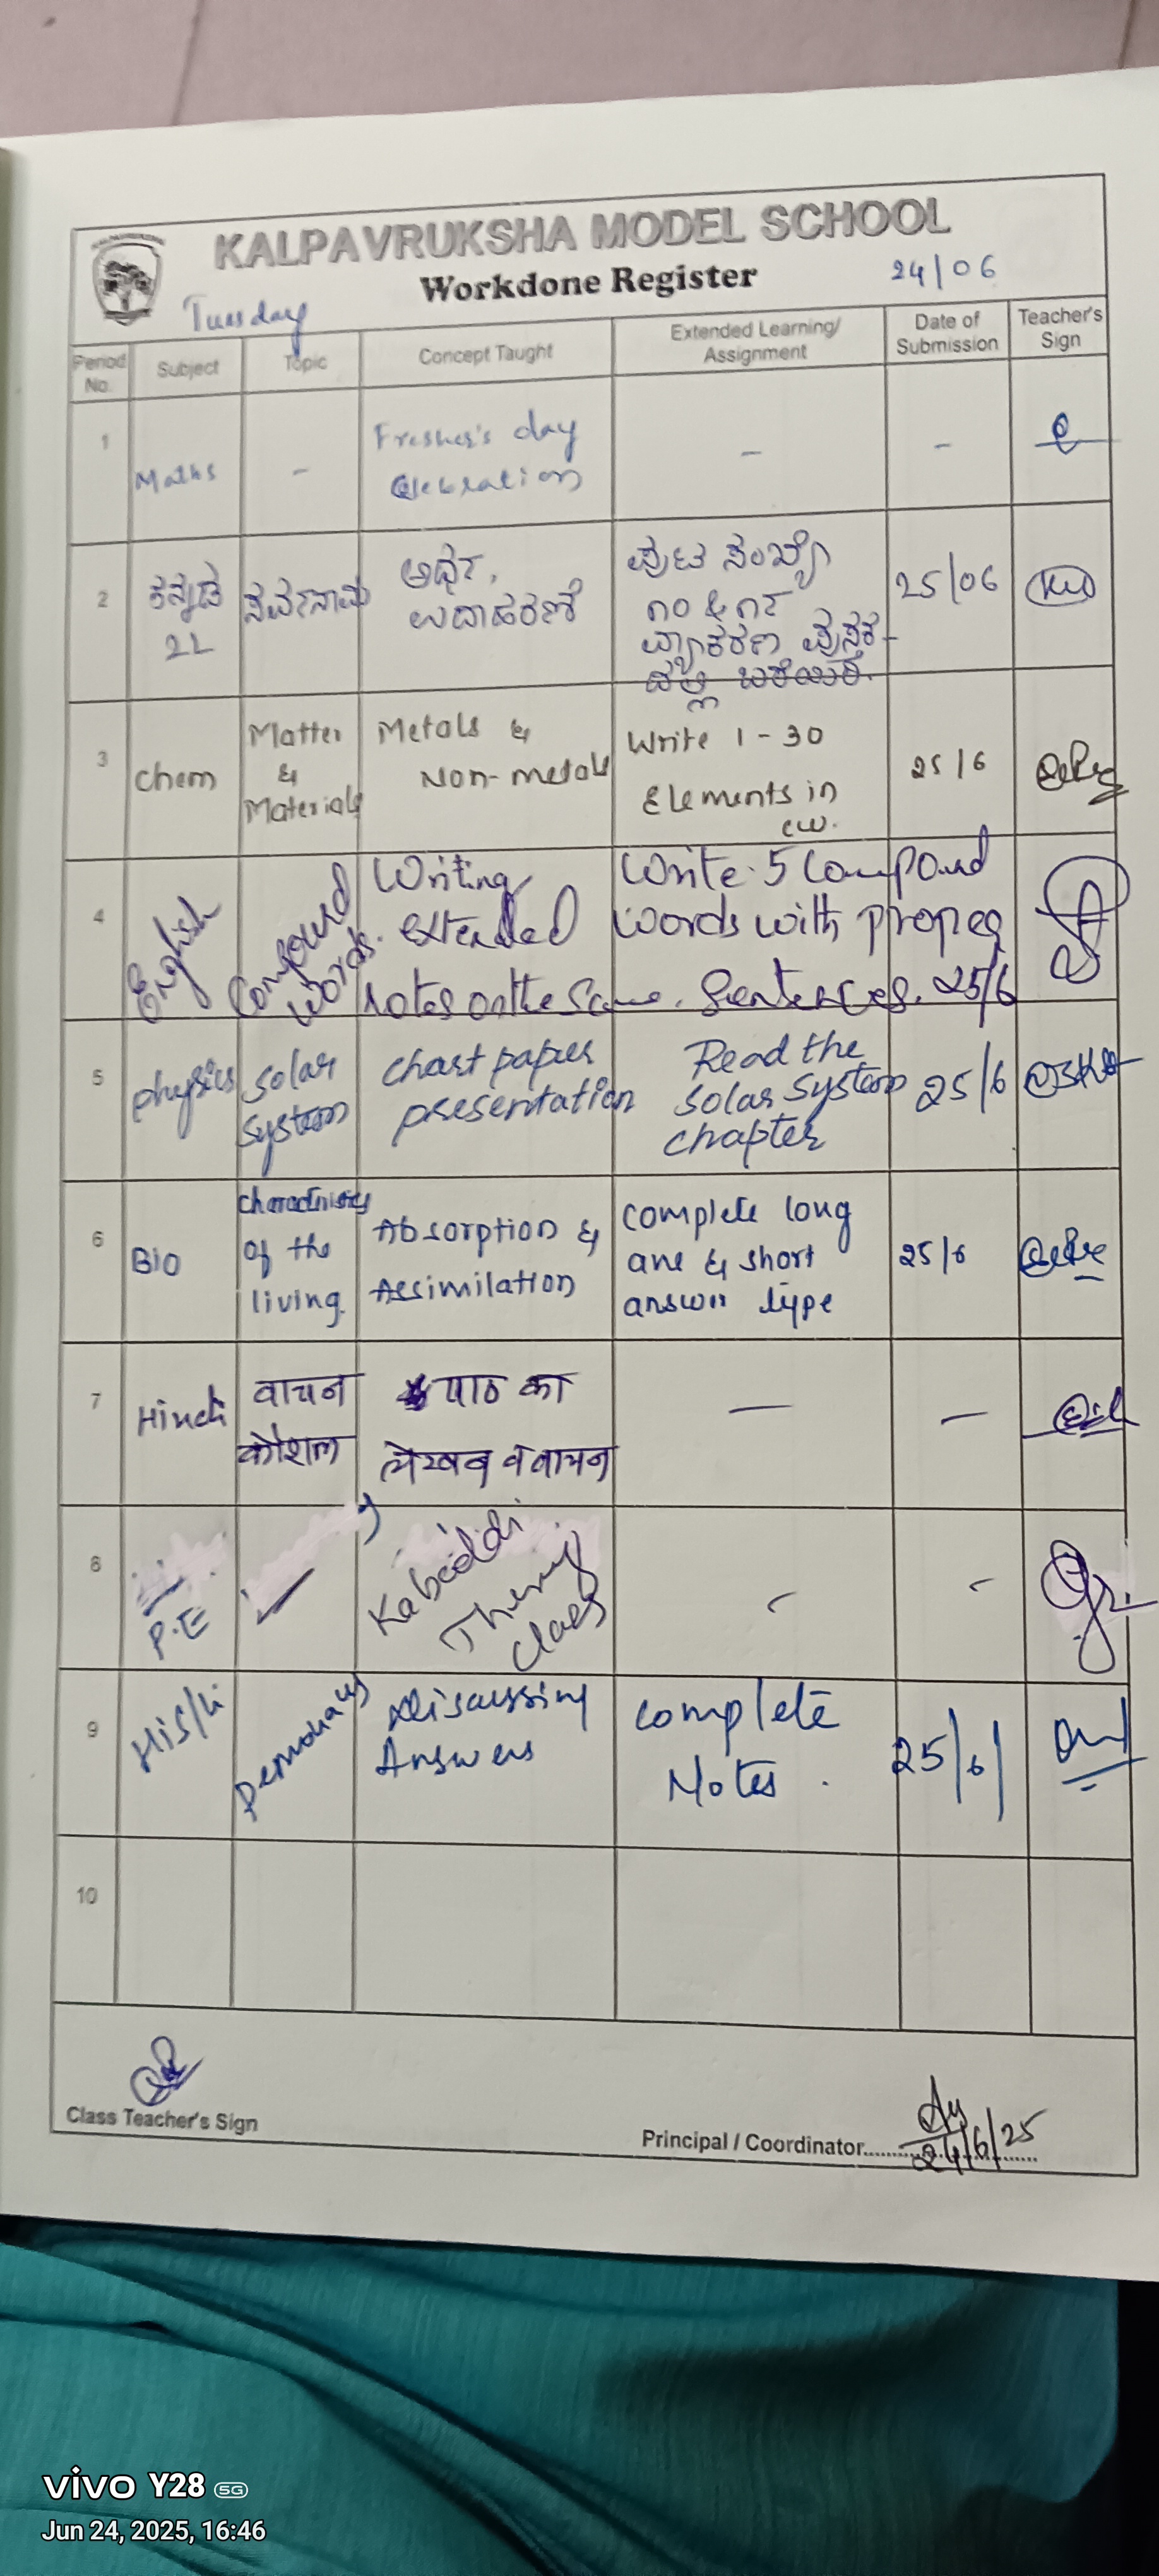 KALPAVRUKSHA MODEL SCHOOL
Workdone Register
24/06
Tuesday
Period No.
Subject
Topic
Concept Taught
Extended Learning/
Assignment
Date of
Submission
Teacher's
Sign
1
Maths
-
Fresher's day
Celebration
-
-
2
ಕನ್ನಡ
2L
ಸರ್ವನಾಮ
ಅರ್ಥ,
ಉದಾಹರಣೆ
ಪುಟ ಸಂಖ್ಯೆ
೧೦ & ೧೯
ವ್ಯಾಕರಣ ಪುಸ್ತಕ-
ದಲ್ಲಿ ಬರೆಯಿರಿ.
25/06
3
Chem
Matter
&
Materials
Metals &
Non-metals
Write 1-30
Elements in
cw.
25/6
4
English
Compound
words.
Writing
extended
notes on the same.
Write 5 Compound
words with proper
Sentences.
25/6
5
Physics
Solar
System
Chart paper
presentation
Read the
Solar System
chapter
25/6
6
BIO
Characteristics
of the
living.
Absorption &
Assimilation
complete long
ans & short
answer type
25/6
7
Hindi
वाचन
कौशल
पाठ का
लेखन व वाचन
—
—
8
P.E
Kabaddi
Theory
Class
-
-
9
His/
Discussing
Answers
Complete
Notes.
25/6/
10
Class Teacher's Sign
Principal / Coordinator
24/6/25
vivo Y28 5G
Jun 24, 2025, 16:46